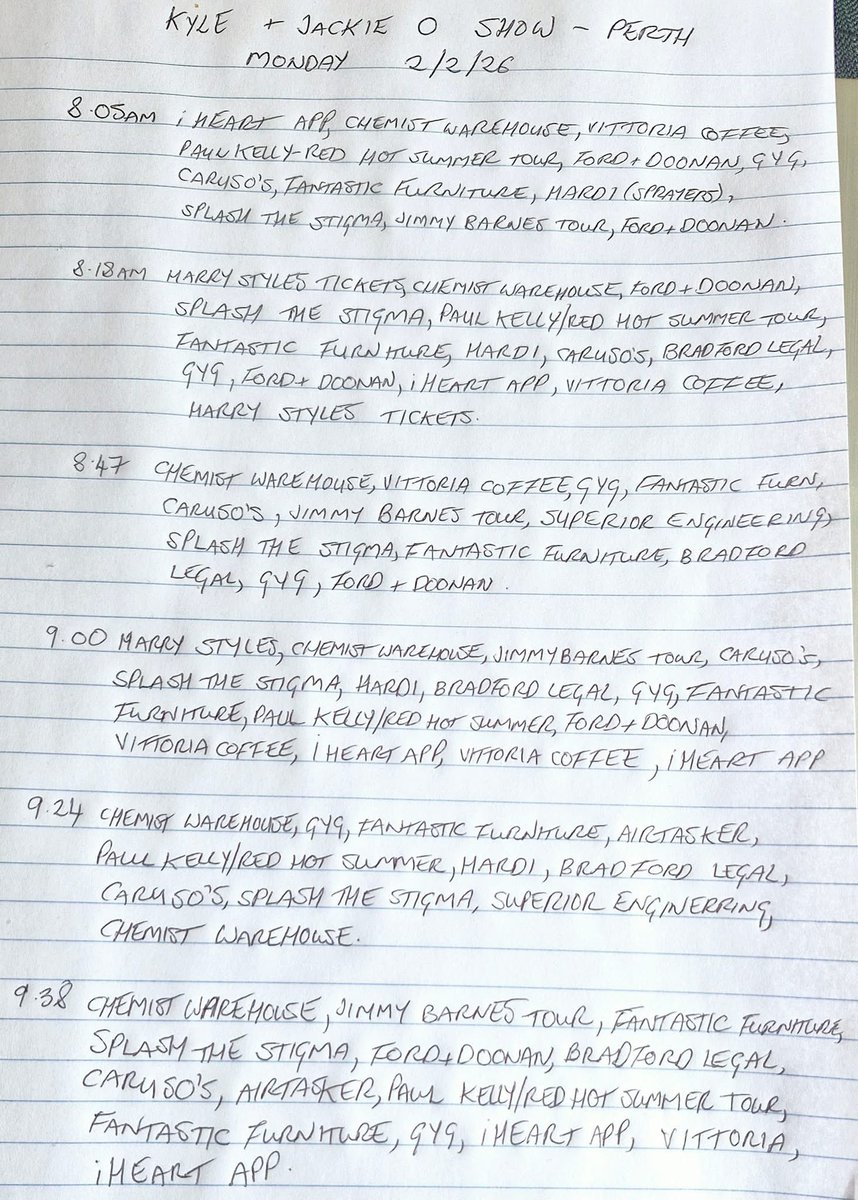 KYLE + JACKIE O SHOW - PERTH
MONDAY 2/2/26
8.05AM i HEART APP, CHEMIST WAREHOUSE, VITTORIA COFFEE,
PAUL KELLY-RED HOT SUMMER TOUR, FORD + DOONAN, GYG,
CARUSO'S, FANTASTIC FURNITURE, HARDI (SPRAYERS),
SPLASH THE STIGMA, JIMMY BARNES TOUR, FORD + DOONAN.
8.18AM HARRY STYLES TICKETS, CHEMIST WAREHOUSE, FORD + DOONAN,
SPLASH THE STIGMA, PAUL KELLY/RED HOT SUMMER TOUR,
FANTASTIC FURNITURE, HARDI, CARUSO'S, BRADFORD LEGAL,
GYG, FORD + DOONAN, iHEART APP, VITTORIA COFFEE,
HARRY STYLES TICKETS.
8.47 CHEMIST WAREHOUSE, VITTORIA COFFEE, GYG, FANTASTIC FURN,
CARUSO'S, JIMMY BARNES TOUR, SUPERIOR ENGINEERING,
SPLASH THE STIGMA, FANTASTIC FURNITURE, BRADFORD
LEGAL, GYG, FORD + DOONAN.
9.00 HARRY STYLES, CHEMIST WAREHOUSE, JIMMY BARNES TOUR, CARUSO'S,
SPLASH THE STIGMA, HARDI, BRADFORD LEGAL, GYG, FANTASTIC
FURNITURE, PAUL KELLY/RED HOT SUMMER, FORD + DOONAN,
VITTORIA COFFEE, iHEART APP, VITTORIA COFFEE, iHEART APP
9.24 CHEMIST WAREHOUSE, GYG, FANTASTIC FURNITURE, AIRTASKER,
PAUL KELLY/RED HOT SUMMER, HARDI, BRADFORD LEGAL,
CARUSO'S, SPLASH THE STIGMA, SUPERIOR ENGINERRING,
CHEMIST WAREHOUSE.
9.38 CHEMIST WAREHOUSE, JIMMY BARNES TOUR, FANTASTIC FURNITURE,
SPLASH THE STIGMA, FORD + DOONAN, BRADFORD LEGAL,
CARUSO'S, AIRTASKER, PAUL KELLY/RED HOT SUMMER TOUR,
FANTASTIC FURNITURE, GYG, iHEART APP, VITTORIA,
iHEART APP.